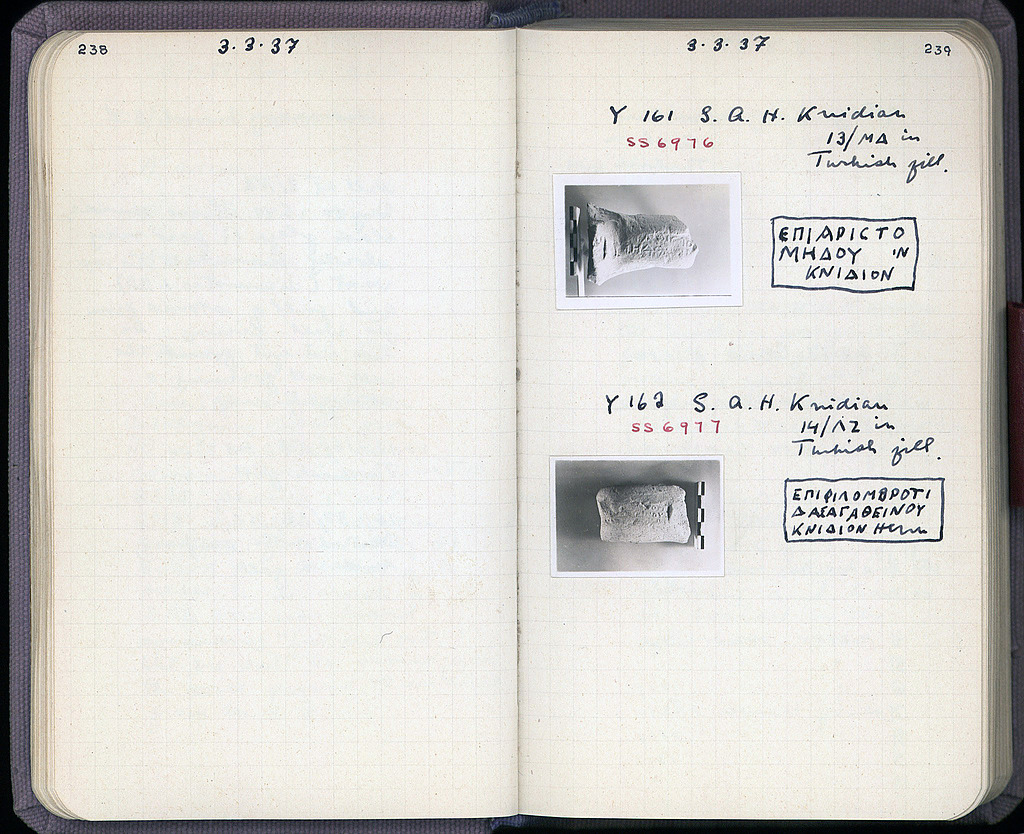 238
3.3.37
3.3.37
239
Y 161 S. A. H. Knidian
SS 6976
13/ΜΔ in
Turkish fill.
ΕΠΙΑΡΙCΤΟ
ΜΗΔΟΥ
ΚΝΙΔΙΟΝ
Y 162 S. A. H. Knidian
SS 6977
14/ΛΖ in
Turkish fill.
ΕΠΙΦΙΛΟΜΒΡΟΤΙ
ΔΑΣΑΓΑΘΕΙΝΟΥ
ΚΝΙΔΙΟΝ Herm